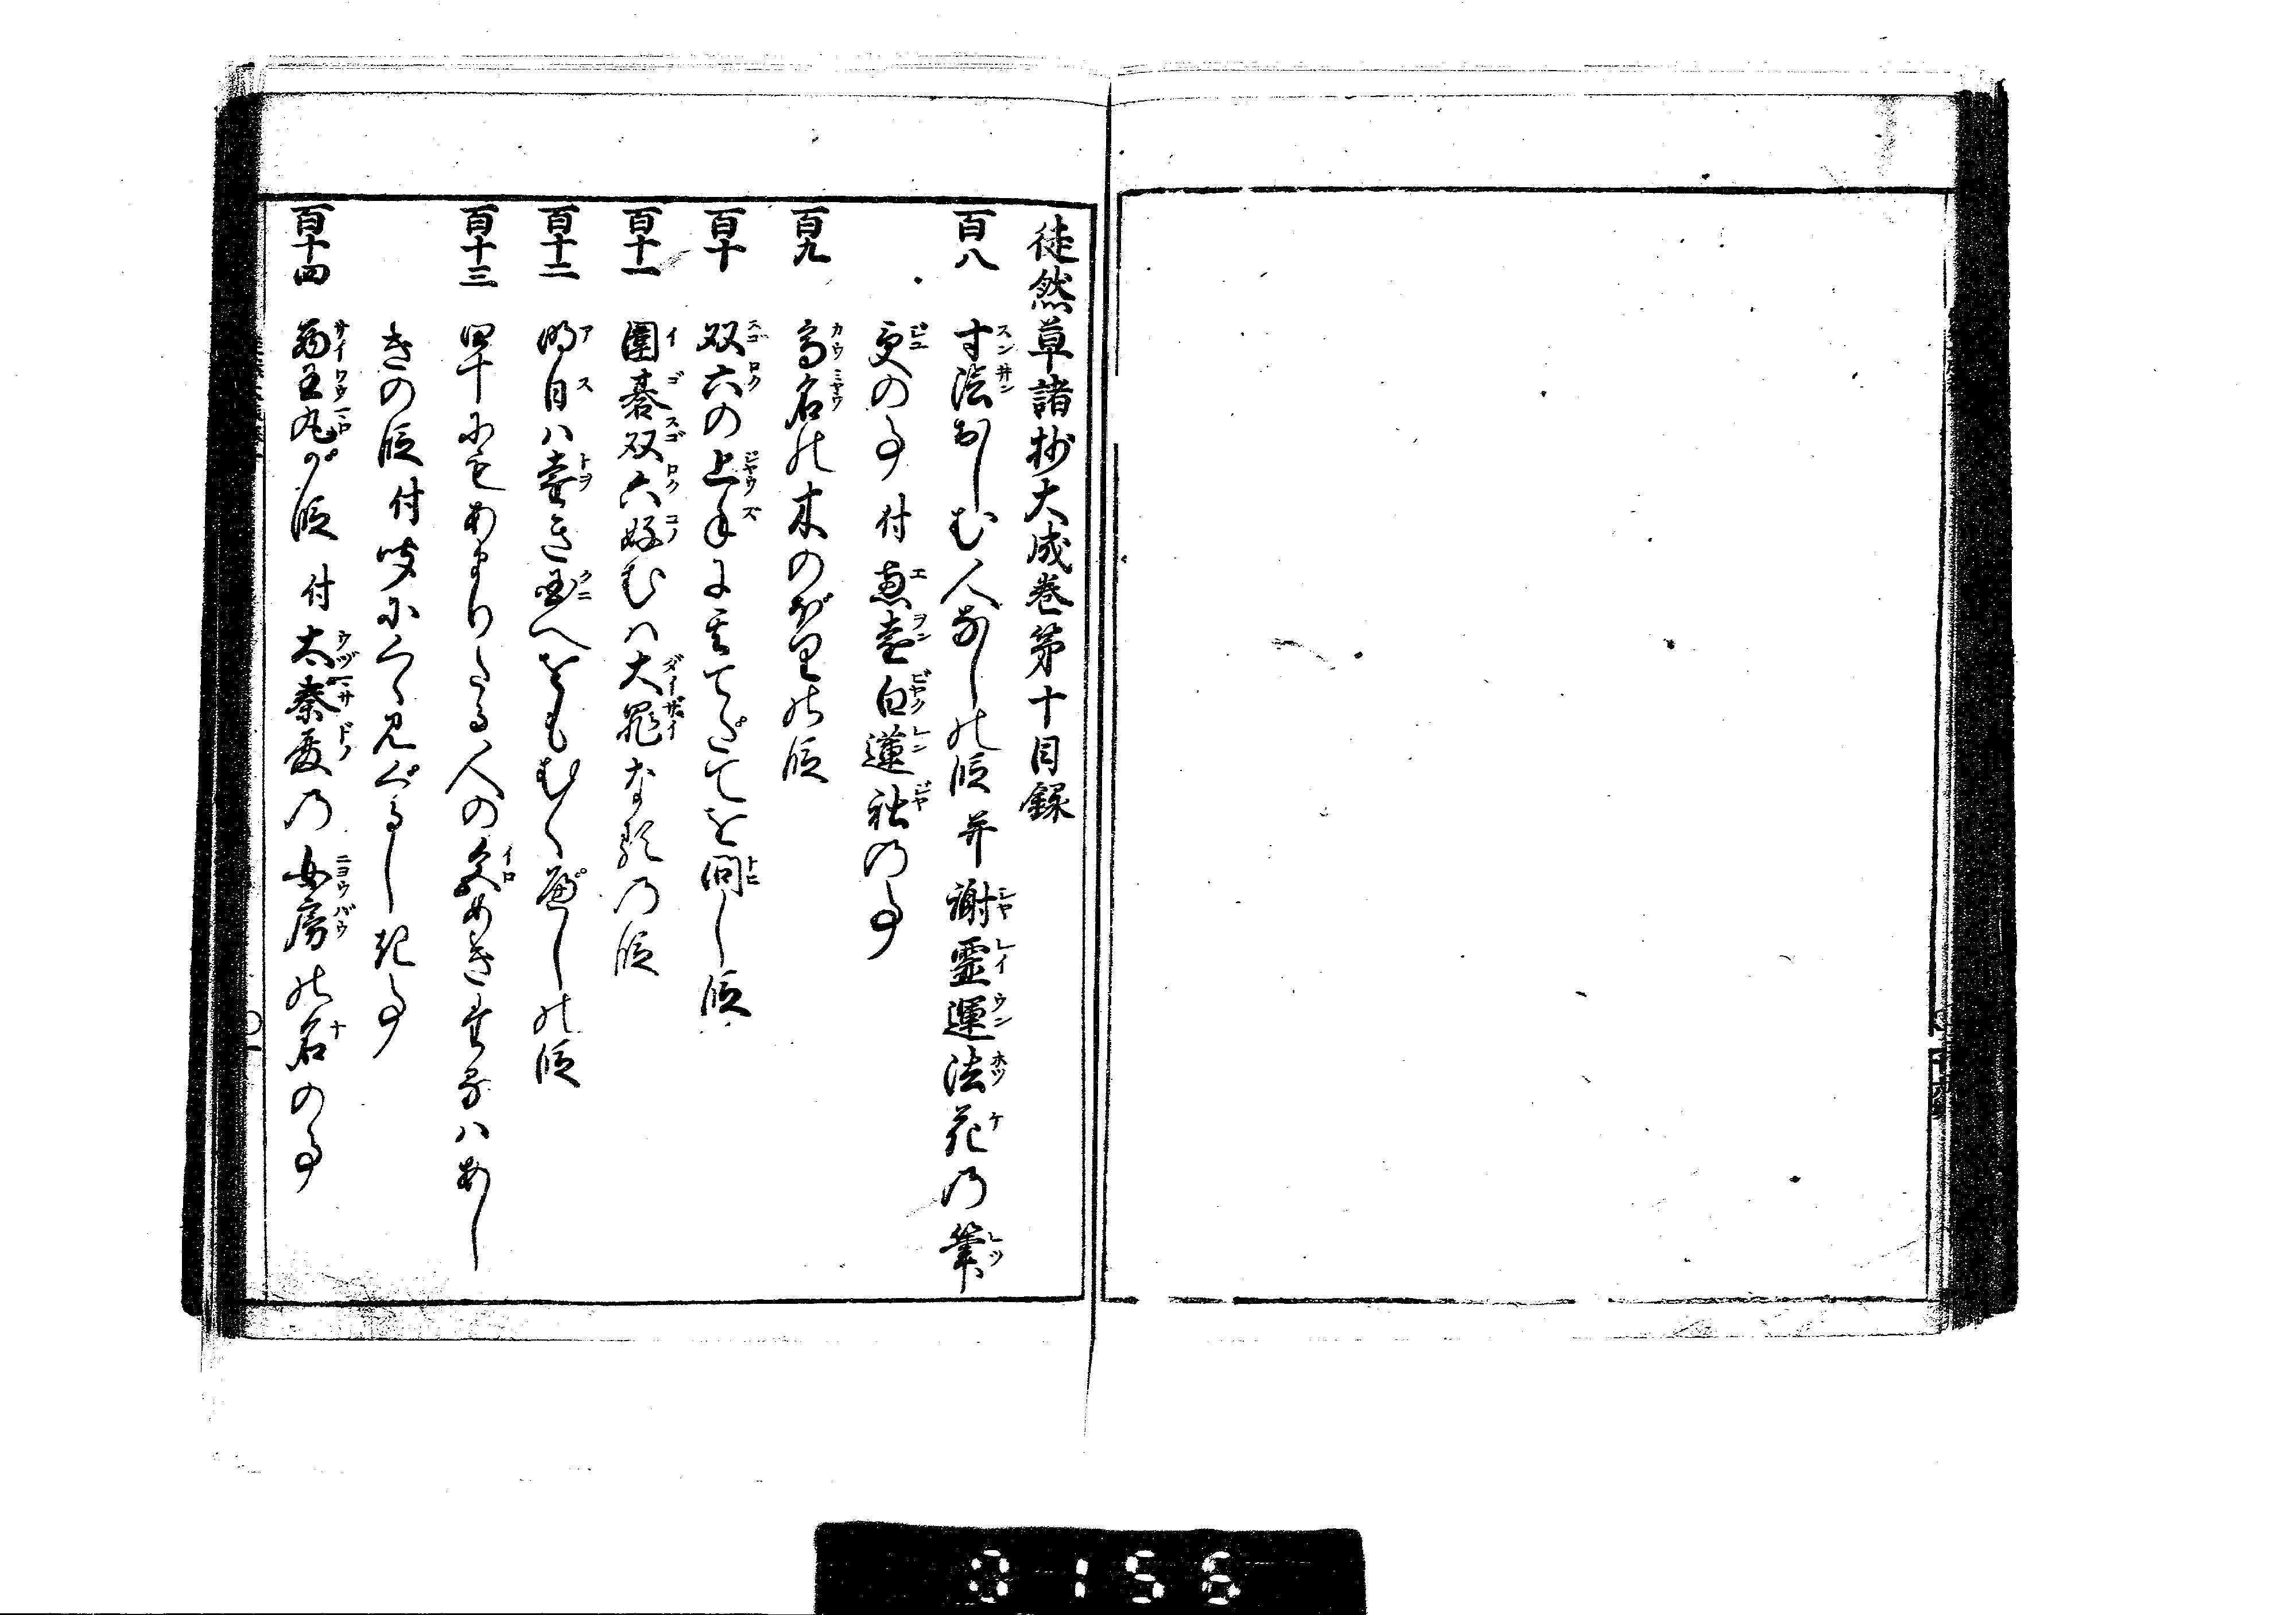 徒然草諸抄大成巻第十目録
百八 寸陰おしむ人なしの段 并 謝霊運法花の筆
受の事 付 恵遠白蓮社の事
百九 高名の木のぼりの段
百十 双六の上手にその手だてを問し段
百十一 囲碁双六好むハ大罪なる歟の段
百十二 明日ハ遠き国へをもむくべしの段
百十三 四十にもあまりたる人の色めきたるハあし
きの段 付 聞にくゝ見ぐるしき事
百十四 西王丸が段 付 太秦殿の女房の名の事
0156